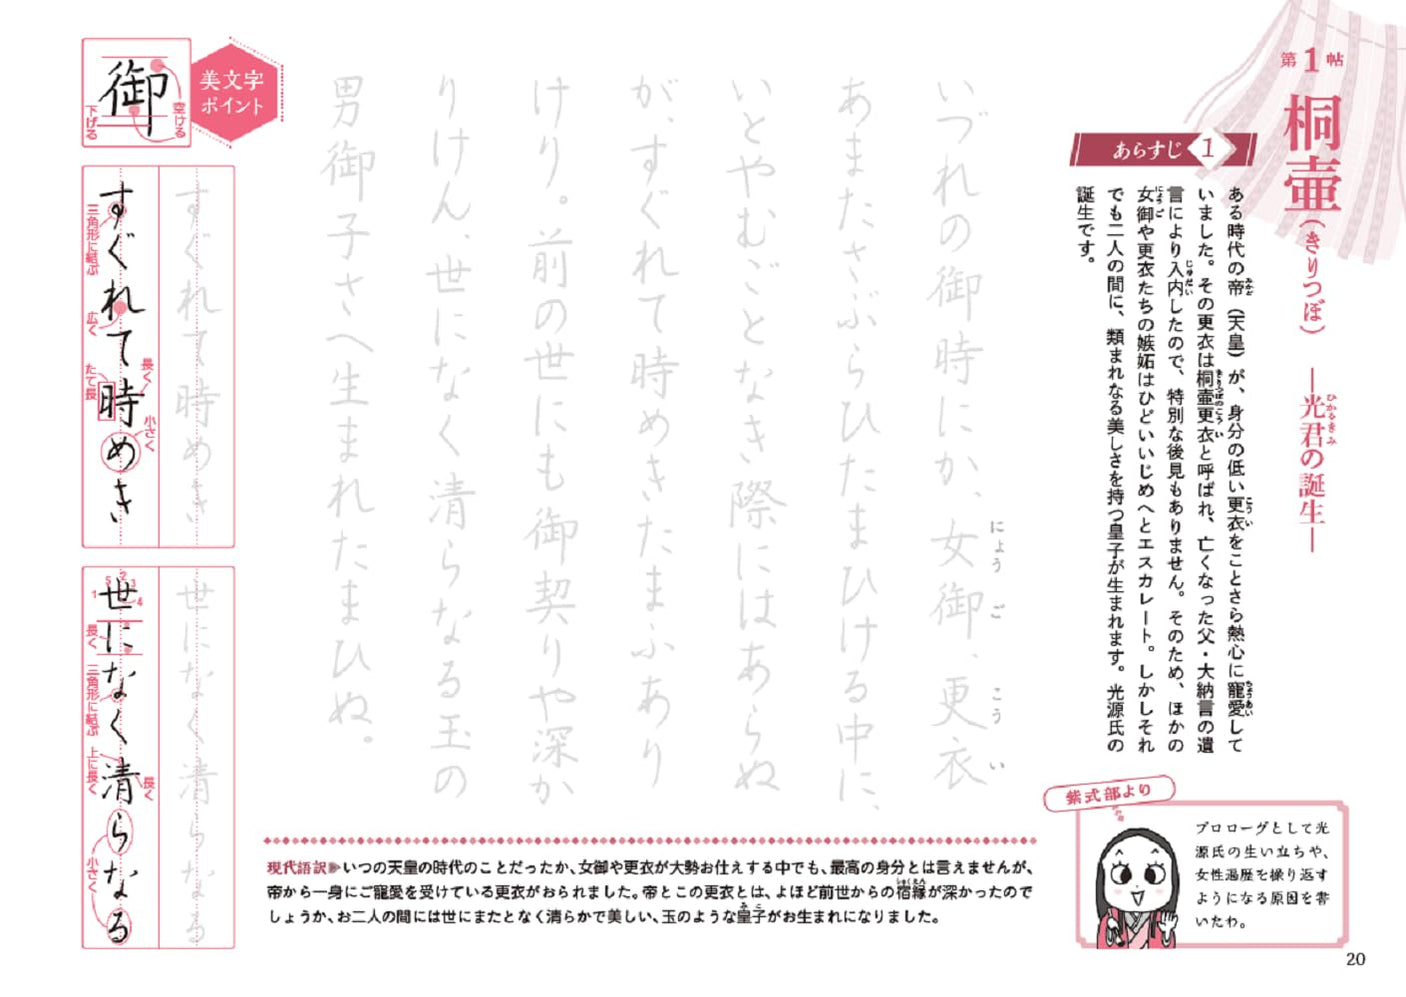 第1帖
桐壷(きりつぼ) ―光君の誕生―
ひかるきみ
あらすじ 1
ある時代の帝(天皇)が、身分の低い更衣をことさら熱心に寵愛して
みかど
こうい
ちょうあい
いました。その更衣は桐壷更衣と呼ばれ、亡くなった父・大納言の遺
きりつぼのこうい
言により入内したので、特別な後見もありません。そのため、ほかの
じゅだい
女御や更衣たちの嫉妬はひどいいじめへとエスカレート。しかしそれ
にょうご
でも二人の間に、類まれなる美しさを持つ皇子が生まれます。光源氏の
誕生です。
紫式部より
プロローグとして光
源氏の生い立ちや、
女性遍歴を繰り返す
ようになる原因を書
いたわ。
いづれの御時にか、女御、更衣
にょうご
こうい
あまたさぶらひたまひける中に、
いとやむごとなき際にはあらぬ
が、すぐれて時めきたまふあり
けり。前の世にも御契りや深か
りけん、世になく清らなる玉の
男御子さへ生まれたまひぬ。
現代語訳 いつの天皇の時代のことだったか、女御や更衣が大勢お仕えする中でも、最高の身分とは言えませんが、
帝から一身にご寵愛を受けている更衣がおられました。帝とこの更衣とは、よほど前世からの宿縁が深かったので
しゅくえん
しょうか、お二人の間には世にまたとなく清らかで美しい、玉のような皇子がお生まれになりました。
みこ
美文字
ポイント
御
空ける
下げる
すぐれて時めき
すぐれて時めき
三角形に結ぶ
広く
長く
たて長
小さく
世になく清らなる
世になく清らなる
1
5
2
3
4
長く
三角形に結ぶ
上に長く
長く
小さく
20